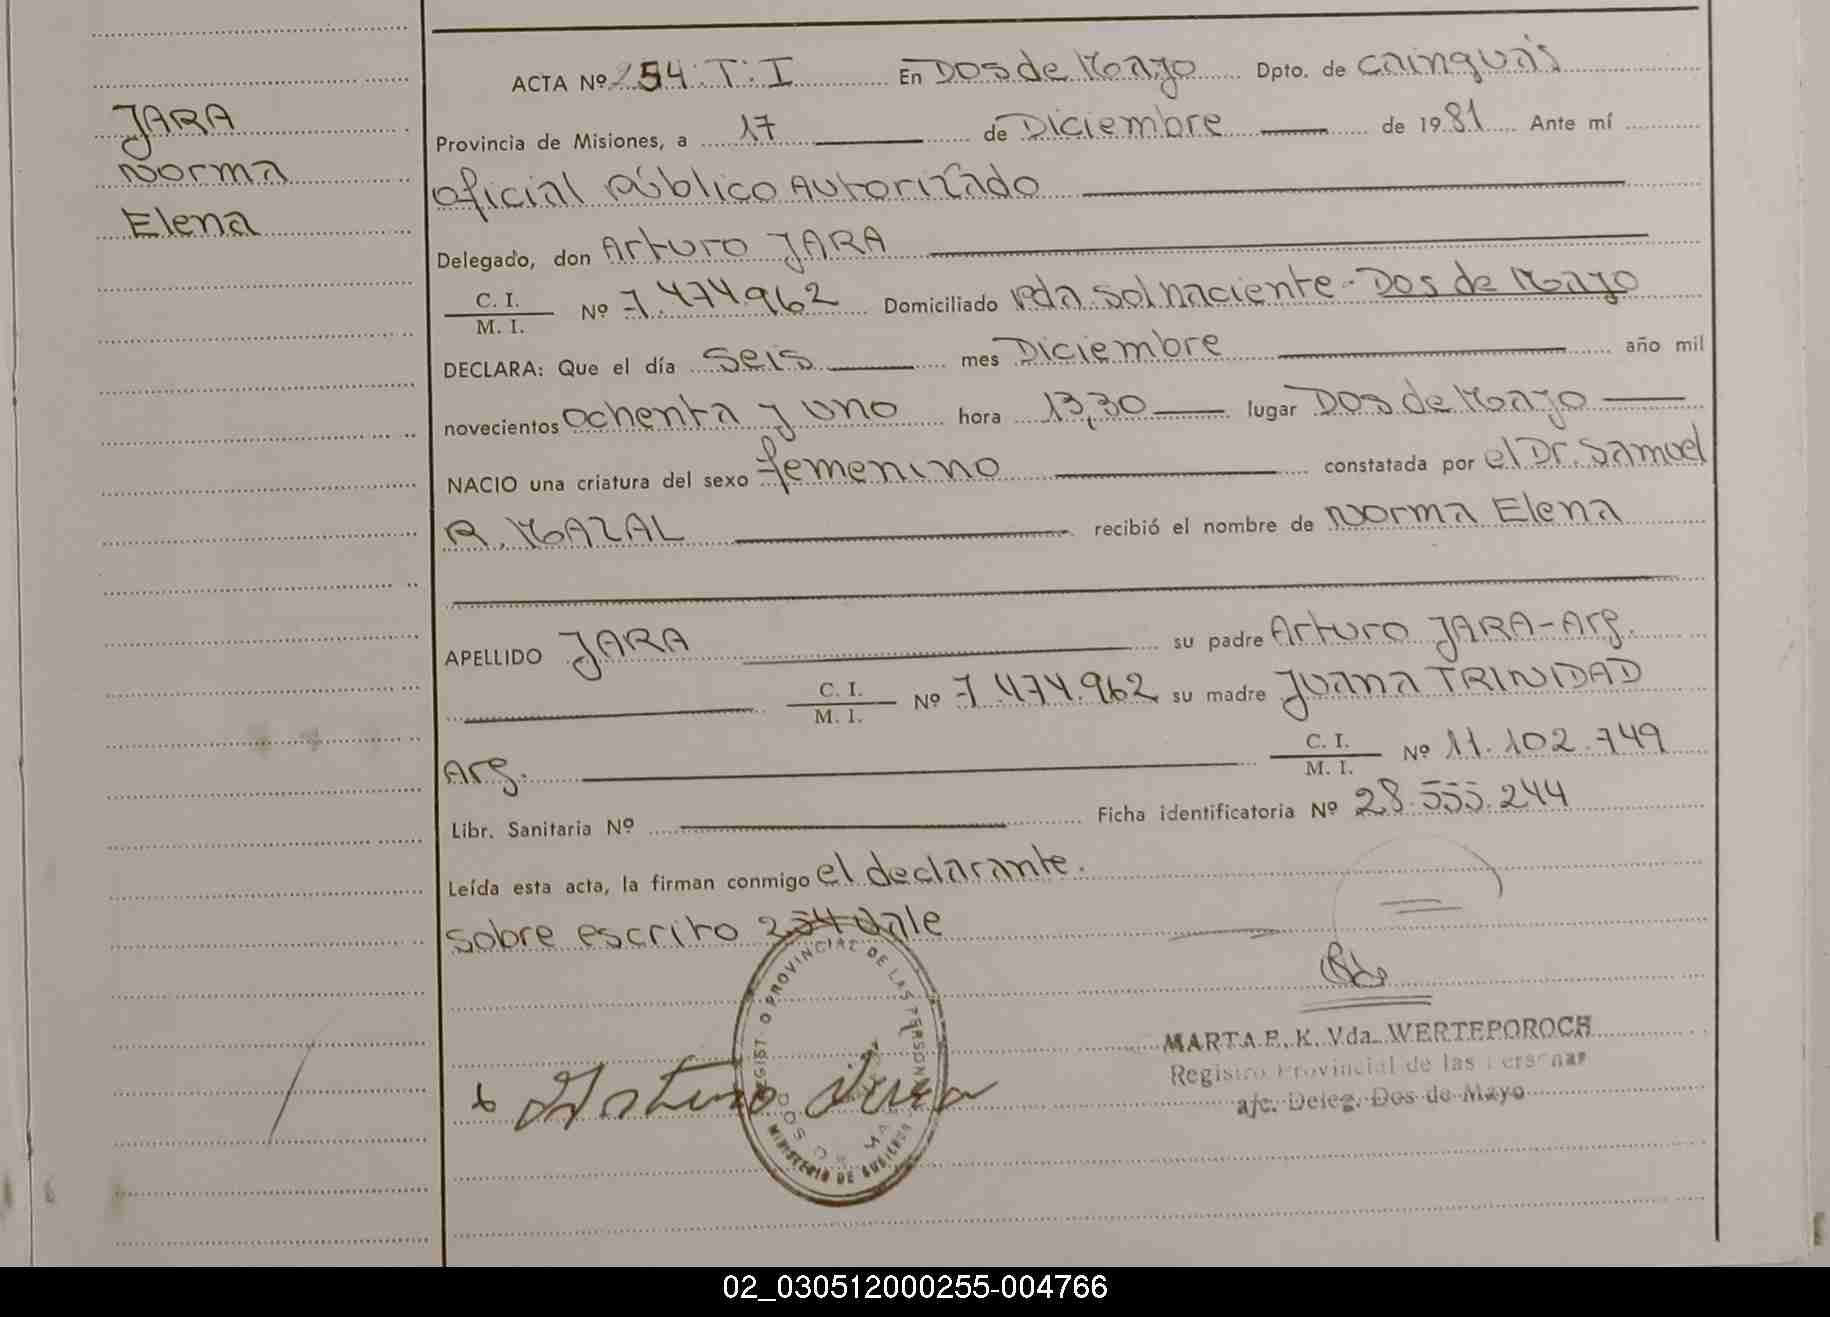 JARA
Norma
Elena
ACTA Nº 254. T: I En Dos de Mayo Dpto. de Cainguás
Provincia de Misiones, a 17 de Diciembre de 1981 Ante mí
Oficial Público Autorizado
Delegado, don Arturo JARA
C. I.
M. I. Nº 7.474.962 Domiciliado Pda Sol naciente - Dos de Mayo
DECLARA: Que el día Seis mes Diciembre año mil
novecientos ochenta y uno hora 13,30 lugar Dos de Mayo
NACIO una criatura del sexo femenino constatada por el Dr. Samuel
R. MAZAL recibió el nombre de Norma Elena
APELLIDO JARA su padre Arturo JARA - Arg.
C. I.
M. I. Nº 7.474.962 su madre Juana TRINIDAD
Arg. C. I.
M. I. Nº 11.102.749
Libr. Sanitaria Nº Ficha identificatoria Nº 28.555.244
Leída esta acta, la firman conmigo el declarante.
Sobre escrito 254 Vale
REGISTRO PROVINCIAL DE LAS PERSONAS
MINISTERIO DE GOBIERNO
Arturo Jara
MARTA E. K. Vda. WERTEPOROCH
Registro Provincial de las Personas
a/c. Deleg. Dos de Mayo
02_030512000255-004766